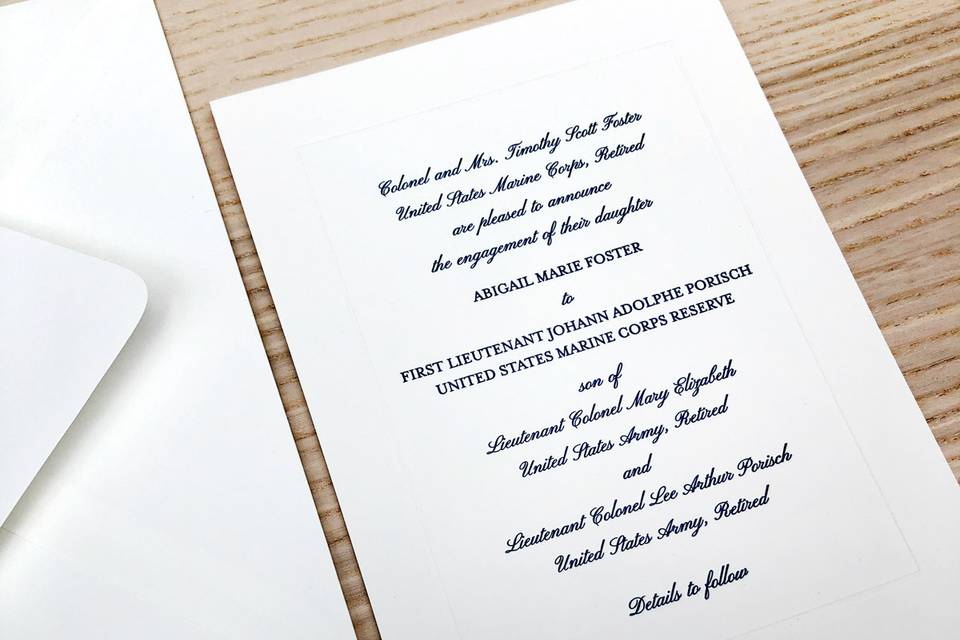 Colonel and Mrs. Timothy Scott Foster
United States Marine Corps, Retired
are pleased to announce
the engagement of their daughter
ABIGAIL MARIE FOSTER
to
FIRST LIEUTENANT JOHANN ADOLPHE PORISCH
UNITED STATES MARINE CORPS RESERVE
son of
Lieutenant Colonel Mary Elizabeth
United States Army, Retired
and
Lieutenant Colonel Lee Arthur Porisch
United States Army, Retired
Details to follow